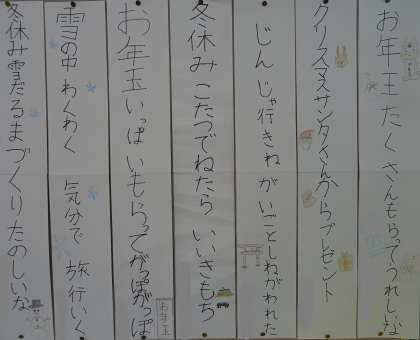 お年玉たくさんもらってうれしいな
クリスマスサンタさんからプレゼント
じんじゃ行きねがいごとしねがわれた
冬休みこたつでねたらいいきもち
お年玉いっぱいもらってがっぽがっぽ
お年玉
雪の中わくわく気分で旅行いく
冬休み雪だるまづくりたのしいな